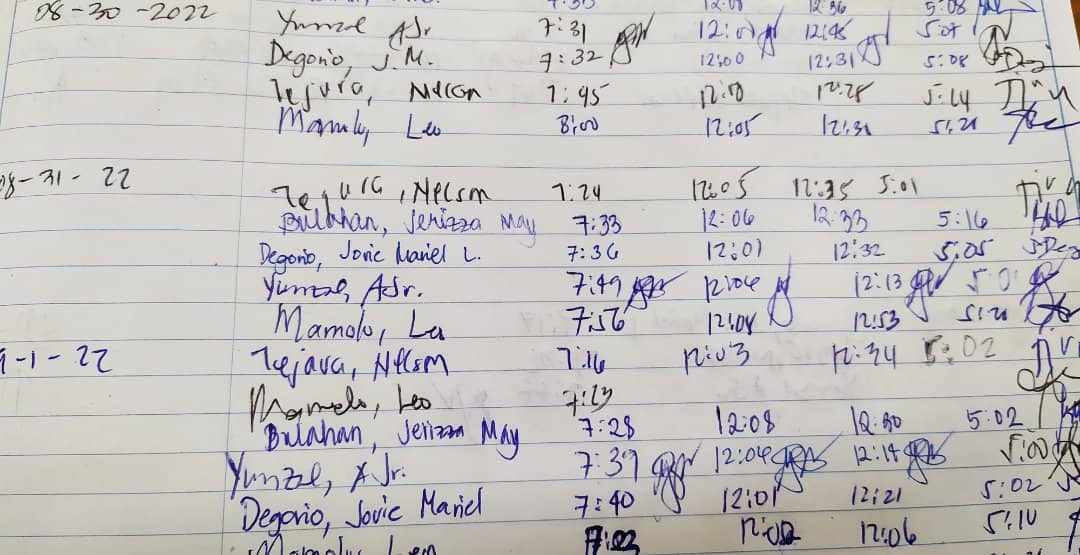 08-30-2022
Yumzal A Jr. 7:31 12:01 12:45 5:07
Degorio, J.M. 7:32 12:00 12:31 5:08
Tejura, Nelson 7:45 12:10 12:28 5:14
Mamolo, Leo 8:00 12:05 12:31 5:21
08-31-22 Tejura, Nelson 7:24 12:05 12:35 5:01
Bulahan, Jerizza May 7:33 12:06 12:33 5:16
Degorio, Jovic Mariel L. 7:36 12:01 12:32 5:05
Yumzal, A Jr. 7:49 12:04 12:13
Mamolo, Leo 7:56 12:08 12:53 5:21
9-1-22 Tejava, Nelson 7:16 12:03 12:34 5:02
Mamolo, Leo 7:23
Bulahan, Jerizza May 7:28 12:08 12:30 5:02
Yumzal, A Jr. 7:39 12:04 12:14 5:00
Degorio, Jovic Mariel 7:40 12:01 12:21 5:02
12:02 12:06 5:10